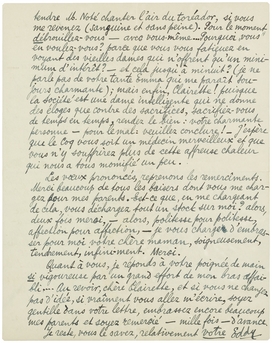 tendre M. Noté chanter l'air du toréador, si vous
me revenez (languine et sans peine). Pour le moment
détrouillez-vous — avec vous-même — Pourquoi vous
en voulez-vous? parce que vous vous fatiguez en
voyant des vieilles dames qui n'offrent qu'un mini-
mum d'intérêt! — et cela jusqu'à minuit! (je ne
parle pas de votre tante qui me paraît tou-
jours charmante); mais enfin, Clairette! puisque
la société est une dame intelligente qui ne donne
des éloges que contre des sacrifices, sacrifiez-vous
de temps en temps, rendez le bien: votre charmante
personne — pour le mal: veuillez conclure! — J'espère
que le Coq vous soit un médecin merveilleux et que
vous n'y souffrirez plus de cette affreuse chaleur
qui nous a tous momifié un peu.
Les vœux prononcés, reprenons les remerciments.
Merci beaucoup de tous les baisers dont vous me char-
gez pour mes parents. Est-ce que, en me chargeant
de cela, vous déchargez tout un stock sur moi? alors,
deux fois merci, — alors, politesse pour politesse,
affection pour affection, — je vous charge d'embras-
ser pour moi votre chère maman, soigneusement,
tendrement, infiniment. Merci.
Quant à vous, je réponds à votre poignée de main
si vigoureuse par un grand effort de mon bras affai-
bli... Au revoir, chère Clairette, et si vous ne changez
pas d'idée, si vraiment vous allez m'écrire, soyez
gentille dans votre lettre, embrassez encore beaucoup
mes parents et soyez remerciée — mille fois — d'avance.
Je reste, vous le savez, relativement votre Eddy